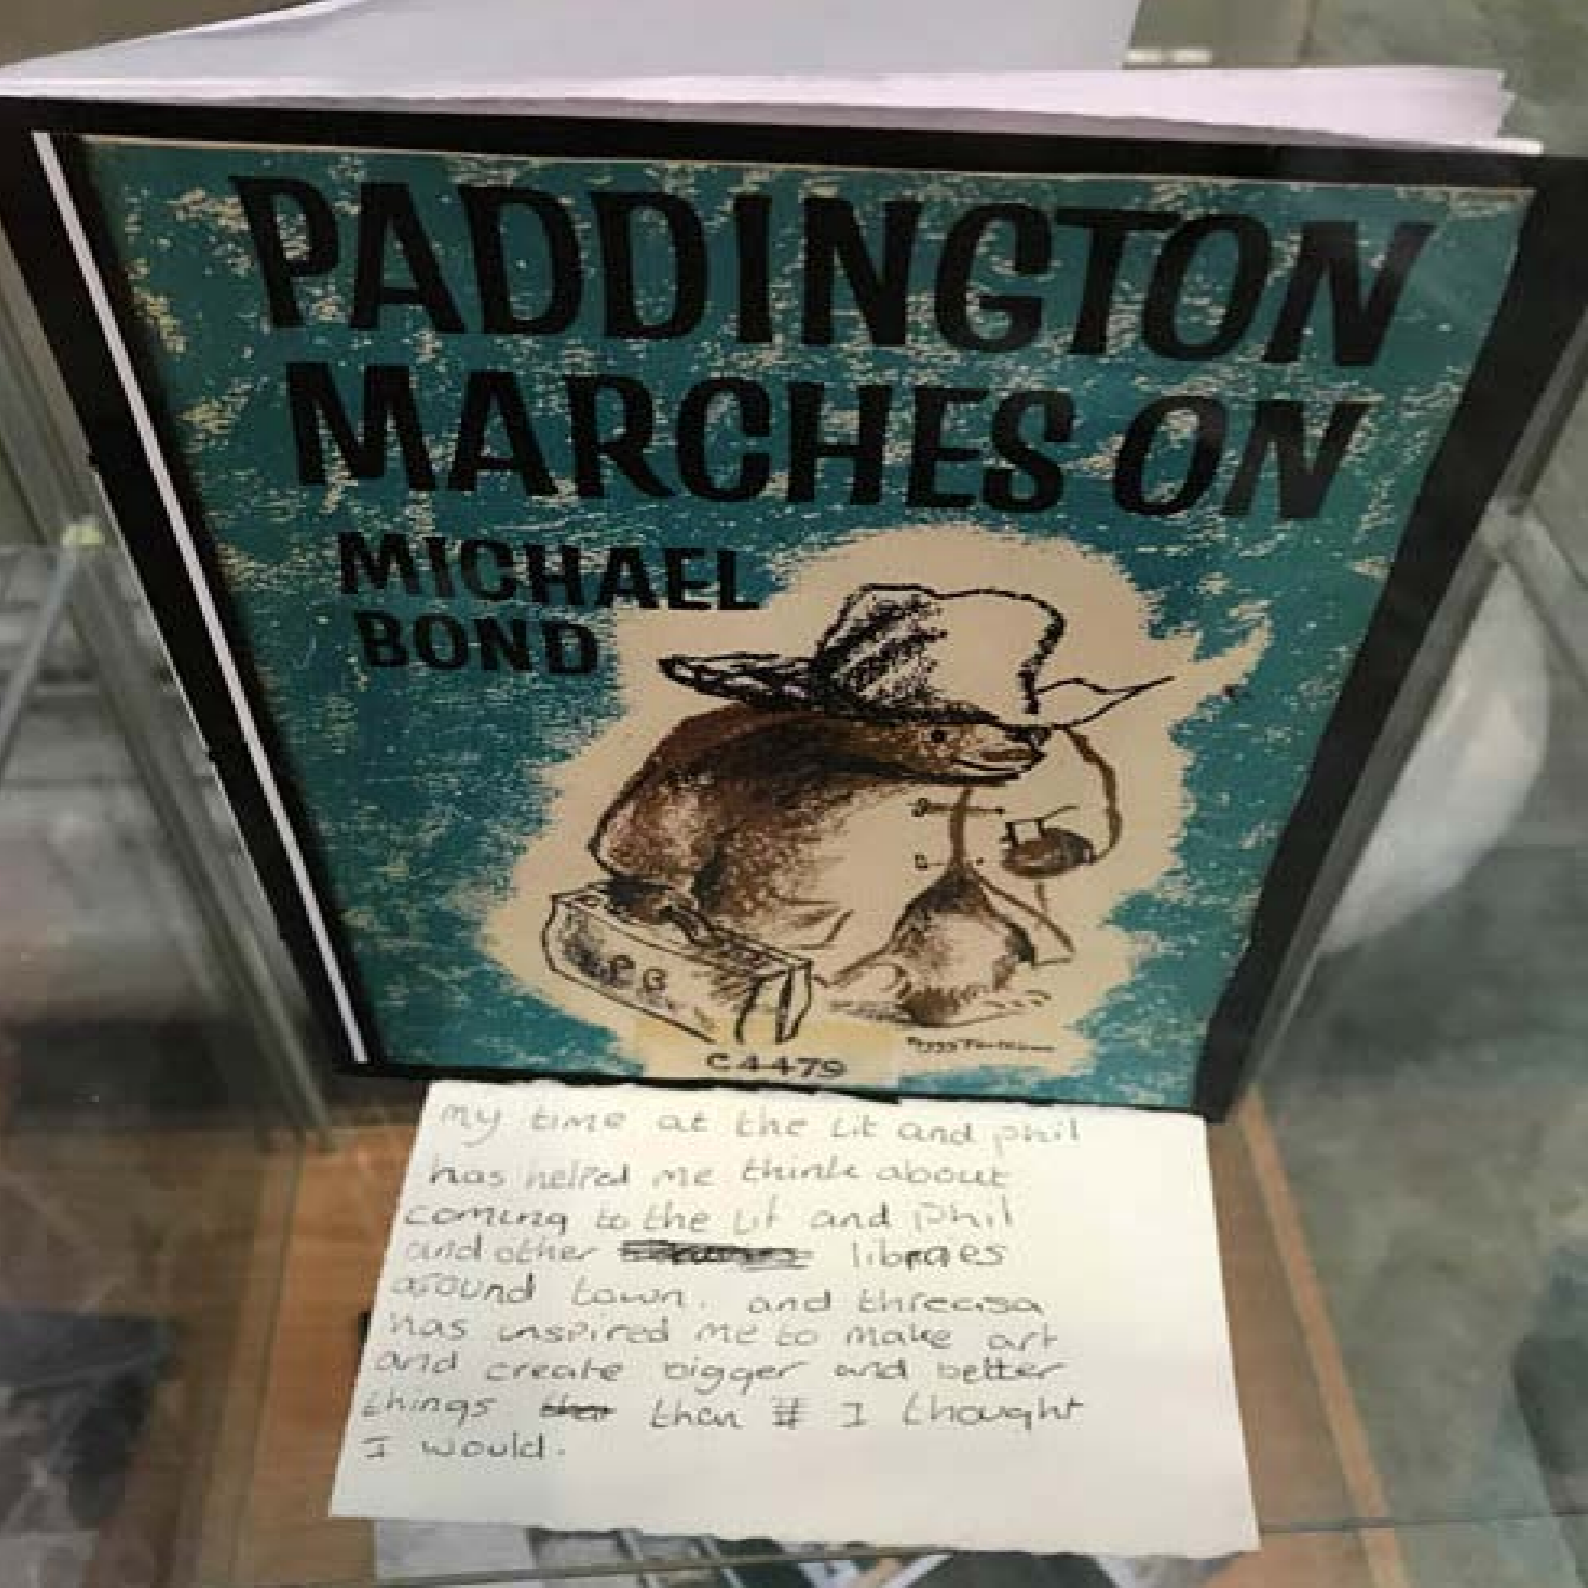 PADDINGTON
MARCHES ON
MICHAEL
BOND
P B
C4479
my time at the Lit and phil
has helped me think about
coming to the Lit and Phil
and other libraies
around town. and threasa
has inspired me to make art
and create bigger and better
things than I thought
I would.